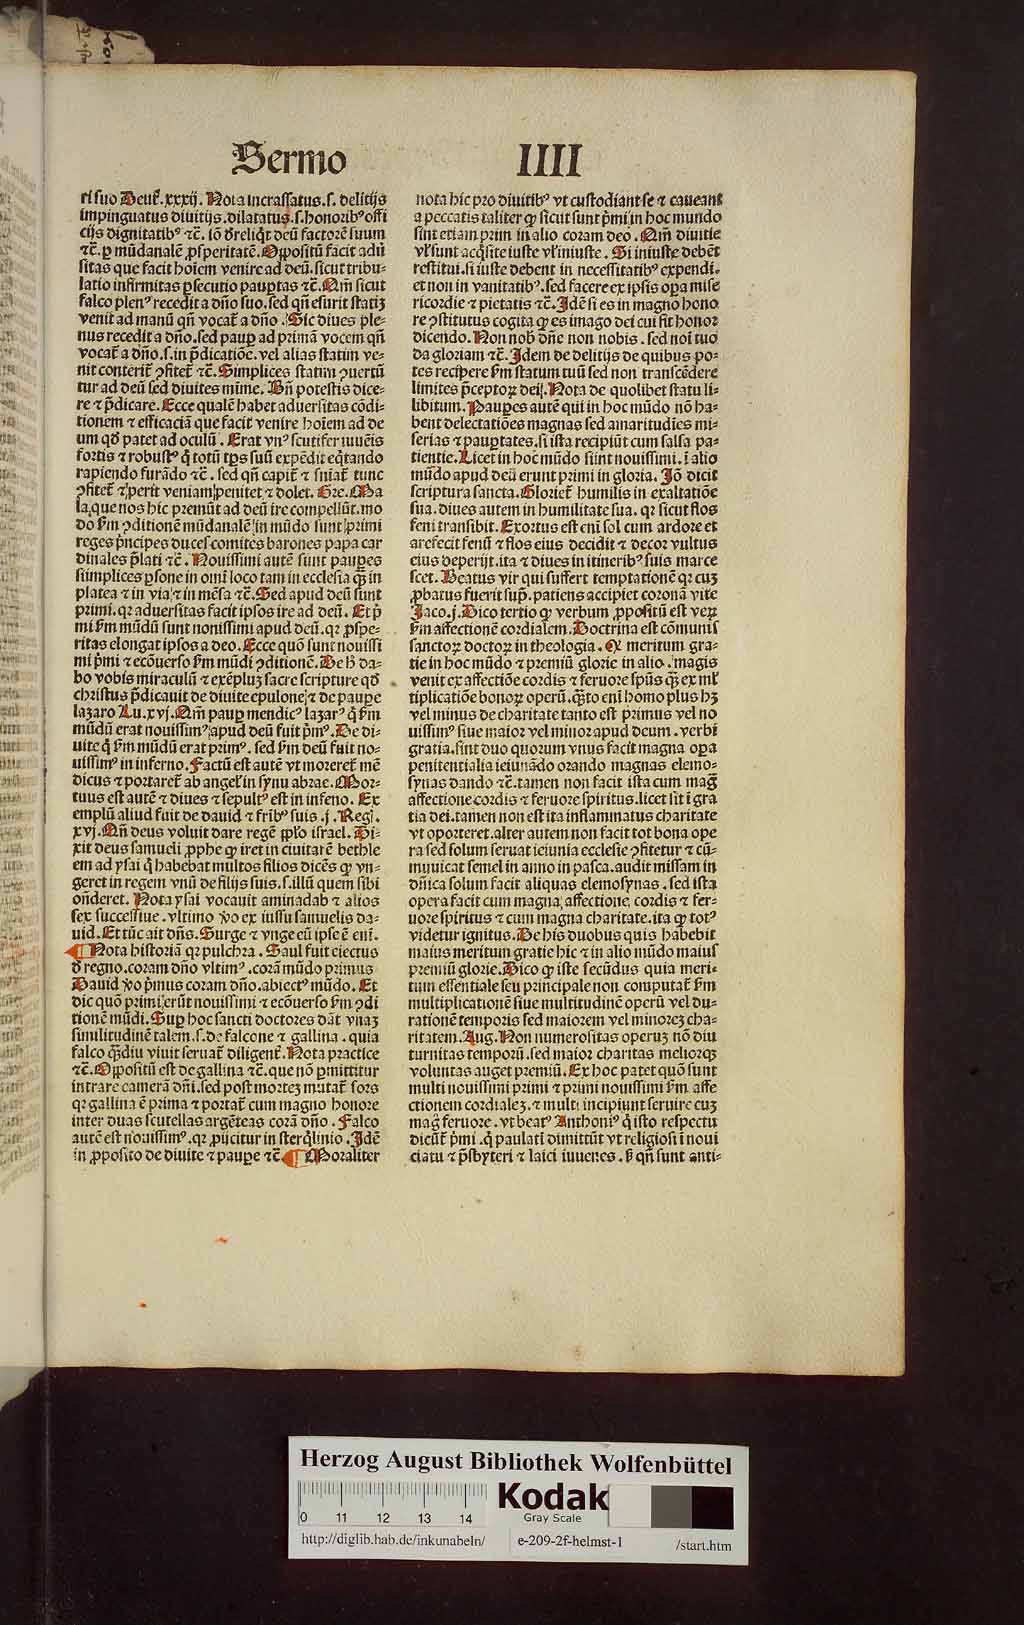 Sermo IIII
ri suo Deut̃.xxxij. Nota incrassatus.s. delitijs
impinguatus diuitijs.dilatatus.s.honoribꝰ offi
cijs dignitatibꝰ ⁊c̃. iõ dereliq̃t deũ factorẽ suum
⁊c̃. ꝑ mũdanalẽ ꝓsperitatẽ. Oppositũ facit aduer
sitas que facit hoĩem venire ad deũ.sicut tribu-
latio infirmitas ꝑsecutio pauꝑtas ⁊c̃. Nam̃ sicut
falco plenꝰ recedit a dño suo.sed qñ esurit statiz
venit ad manũ qñ vocat̃ a dño. Sic diues ple-
nus recedit a dño.sed pauꝑ ad primã vocem qñ
vocat̃ a dño.s.in p̃dicatiõe. vel alias statim ve-
nit conterit̃ ꝯfitet̃ ⁊c̃. Simplices statim ꝯuertũ
tur ad deũ sed diuites mĩme. Bñ potestis dice-
re ⁊ p̃dicare. Ecce qualẽ habet aduersitas cõdi-
tionem ⁊ efficaciã que facit venire hoĩem ad de
um qđ patet ad oculũ. Erat vnꝰ scutifer iuuẽis
fortis ⁊ robustꝰ q̃ totũ tp̃s suũ expẽdit eq̃tando
rapiendo furãdo ⁊c̃. sed qñ capit̃ ⁊ sñiat̃ tunc
ꝯfitet̃ ⁊ petit veniam penitet ⁊ dolet. Gre. Ma
la que nos hic premũt ad deũ ire compellũt. mo
do fm ꝯditionem mũdanalẽ in mũdo sunt primi
reges p̃ncipes duces comites barones papa car
dinales p̃lati ⁊c̃. Nouissimi autẽ sunt pauꝑes
siimplices ꝑsone in omĩ loco tam in ecclesia q̃ȝ in
platea ⁊ in via ⁊ in mẽsa ⁊c̃. Sed apud deũ sunt
primi. qꝛ aduersitas facit ipsos ire ad deũ. Et p̃
mi fm mũdũ sunt nouissimi apud deũ. qꝛ ꝓspe-
ritas elongat ipsos a deo. Ecce quõ sunt nouissi
mi p̃mi ⁊ ecõuerso fm mũdi ꝯditionẽ. De h̃ da-
bo vobis miraculũ ⁊ exẽpluȝ sacre scripture qđ
christus p̃dicauit de diuite epulone ⁊ de pauꝑe
lazaro Lu.xvj. Nam̃ pauꝑ mendicꝰ lazarꝰ q̃ fm
mũdũ erat nouissimꝰ apud deũ fuit p̃mꝰ. De di-
uite q̃ fm mũdũ erat primꝰ. sed fm deũ fuit no-
uissimꝰ in inferno. Factũ est autẽ vt moreret̃ mẽ
dicus ⁊ portaret̃ ab angel̃ in synu abrae. Mor-
tuus est autẽ ⁊ diues ⁊ sepultꝰ est in infeno. Ex
emplũ aliud fuit de dauid ⁊ fribꝰ suis .j. Reg.
xvj. Qñ deus voluit dare regẽ pplo israel. Di-
xit deus samueli ꝓphe qꝙ iret in ciuitatẽ bethle
em ad ysai q̃ habebat multos filios dicẽs qꝙ vn-
geret in regem vnũ de filijs suis.s.illũ quem sibi
oñderet. Nota ysai vocauit aminadab ⁊ alios
sex successiue. vltimo ṽo ex iussu samuelis da-
uid. Et tũc ait dñs. Surge ⁊ vnge eũ ipse ẽ enĩ.
Nota historiã qꝛ pulchra. Saul fuit eiectus
đ regno.coram dño vltimꝰ. corã mũdo primus
Dauid ṽo p̃mus coram dño.abiectꝰ mũdo. Et
dic quõ primi erũt nouissimi ⁊ ecõuerso fm ꝯdi
tionẽ mũdi. Suꝑ hoc sancti doctores dãt vnaȝ
similitudinẽ talem.s.de falcone ⁊ gallina. quia
falco q̃ȝdiu viuit seruat̃ diligent̃. Nota practice
⁊c̃. Oppositũ est de gallina ⁊c̃. que nõ ꝑmittitur
intrare camerã dñi.sed post morteȝ mutat̃ sors
qꝛ gallina ẽ prima ⁊ portat̃ cum magno honore
inter duas scutellas argẽteas corã dño. Falco
autẽ est nouissimꝰ. qꝛ ꝓijcitur in sterq̃linio. Idẽ
in ꝓposito de diuite ⁊ pauꝑe ⁊c̃. Moraliter
nota hic pro diuitibꝰ vt custodiant se ⁊ caueant
a peccatis taliter qꝙ sicut sunt p̃mi in hoc mundo
sint etiam prim in alio coram deo. Nam̃ diuitie
vl̃ sunt acq̃site iuste vl̃ iniuste. Si iniuste debẽt
restitui.si iuste debent in necessitatibꝰ expendi.
et non in vanitatibꝰ. sed facere ex ipsis oꝑa mise
ricordie ⁊ pietatis ⁊c̃. Idẽ si es in magno hono
re ꝯstitutus cogita qꝙ es imago dei cui fit honor
dicendo. Non nob̃ dñe non nobis. sed noĩ tuo
da gloriam ⁊c̃. Idem de delitijs de quibus po-
tes recipere fm statum tuũ sed non transcẽdere
limites p̃ceptoꝝ dei. Nota de quolibet statu li-
libitum. Pauꝑes autẽ qui in hoc mũdo nõ ha-
bent delectatiões magnas sed amaritudies mi-
serias ⁊ pauꝑtates.si ista recipiũt cum salsa pa-
tientie. Licet in hoc mũdo siint nouissimi. ĩ alio
mũdo apud deũ erunt primi in gloria. Iõ dicit
scriptura sancta. Gloriet̃ humilis in exaltatiõe
sua. diues autem in humilitate sua. qꝛ sicut flos
feni transibit. Exortus est enĩ sol cum ardore et
arefecit fenũ ⁊ flos eius decidit ⁊ decor vultus
eius deperijt.ita ⁊ diues in itineribꝰ suis marce
scet. Beatus vir qui suffert temptationẽ qꝛ cuȝ
ꝓbatus fuerit sup̃. patiens accipiet coronã vite
Jaco.j. Dico tertio qꝙ verbum ꝓpositũ est veꝝ
fm affectionẽ cordialem. Doctrina est cõmunis
sanctoꝝ doctoꝝ in theologia. Qꝙ meritum gra-
tie in hoc mũdo ⁊ premiũ glorie in alio. magis
venit ex affectiõe cordis ⁊ feruore spũs q̃ȝ ex ml̃
tiplicatiõe bonoꝝ operũ. q̃ȝto enĩ homo plus hȝ
vel minus de charitate tanto est primus vel no
uissimꝰ siue maior vel minor apud deum. verbi
gratia.sint duo quorum vnus facit magna oꝑa
penitentialia ieiunãdo orando magnas elemo-
synas dando ⁊c̃.tamen non facit ista cum mag̃
affectione cordis ⁊ feruore spiritus.licet sit ĩ gra
tia dei.tamen non est ita inflaminatus charitate
vt oporteret.alter autem non facit tot bona ope
ra sed solum seruat ieiunia ecclesie ꝯfitetur ⁊ cõ-
municat semel in anno in pasca.audit missam in
dñica solum facit aliquas elemosynas. sed ista
opera facit cum magna affectione cordis ⁊ fer-
uore spiritus ⁊ cum magna charitate.ita qꝙ totꝰ
videtur ignitus. De his duobus quis habebit
maius meritum gratie hic ⁊ in alio mũdo maius
premiũ glorie. Dico qꝙ iste secũdus quia meri-
tum essentiale seu principale non computat̃ fm
multiplicationẽ siue multitudinẽ operũ vel du-
rationẽ temporis sed maiorem vel minoreȝ cha-
ritatem. Aug. Non numerositas operuȝ nõ diu
turnitas temporũ.sed maior charitas meliorqȝ
voluntas auget premiũ. Ex hoc patet quõ sunt
multi nouissimi primi ⁊ primi nouissimi fm affe
ctionem cordialeȝ. ⁊ multi incipiunt seruire cuȝ
mag̃ feruore. vt beatꝰ Anthoniꝰ q̃ isto respectu
dicũt̃ p̃mi. q̃ paulatĩ dimittũt vt religiosi ĩ noui
ciatu ⁊ p̃sbyteri ⁊ laici iuuenes. ꝟ qñ sunt anti-
Herzog August Bibliothek Wolfenbüttel
0 11 12 13 14
Kodak
Gray Scale
http://diglib.hab.de/inkunabeln/ e-209-2f-helmst-1 /start.htm